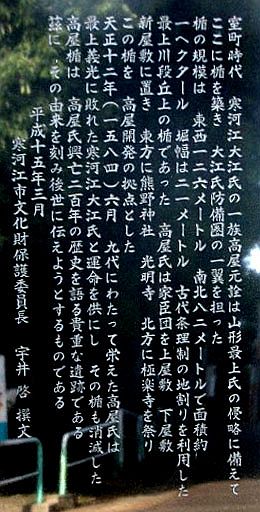 室町時代　寒河江大江氏の一族高屋元詮は山形最上氏の侵略に備えて
ここに楯を築き　大江氏防備圏の一翼を担った
楯の規模は　東西一二六メートル　南北八二メートルで面積約
一ヘクタール　堀幅は二一メートル　古代条理制の地割りを利用した
最上川段丘上の楯であった　高屋氏は家臣団を上屋敷　下屋敷
新屋敷に置き　東方に熊野神社　光明寺　北方に極楽寺を祭り
この楯を　高屋開発の拠点とした
天正十二年（一五八四）六月　九代にわたって栄えた高屋氏は
最上義光に敗れた寒河江大江氏と運命を供にし　その楯も消滅した
高屋楯は　高屋氏興亡二百年の歴史を語る貴重な遺跡である
茲に　その由来を刻み後世に伝えようとするものである
平成十五年三月
寒河江市文化財保護委員長　宇井　啓　撰文